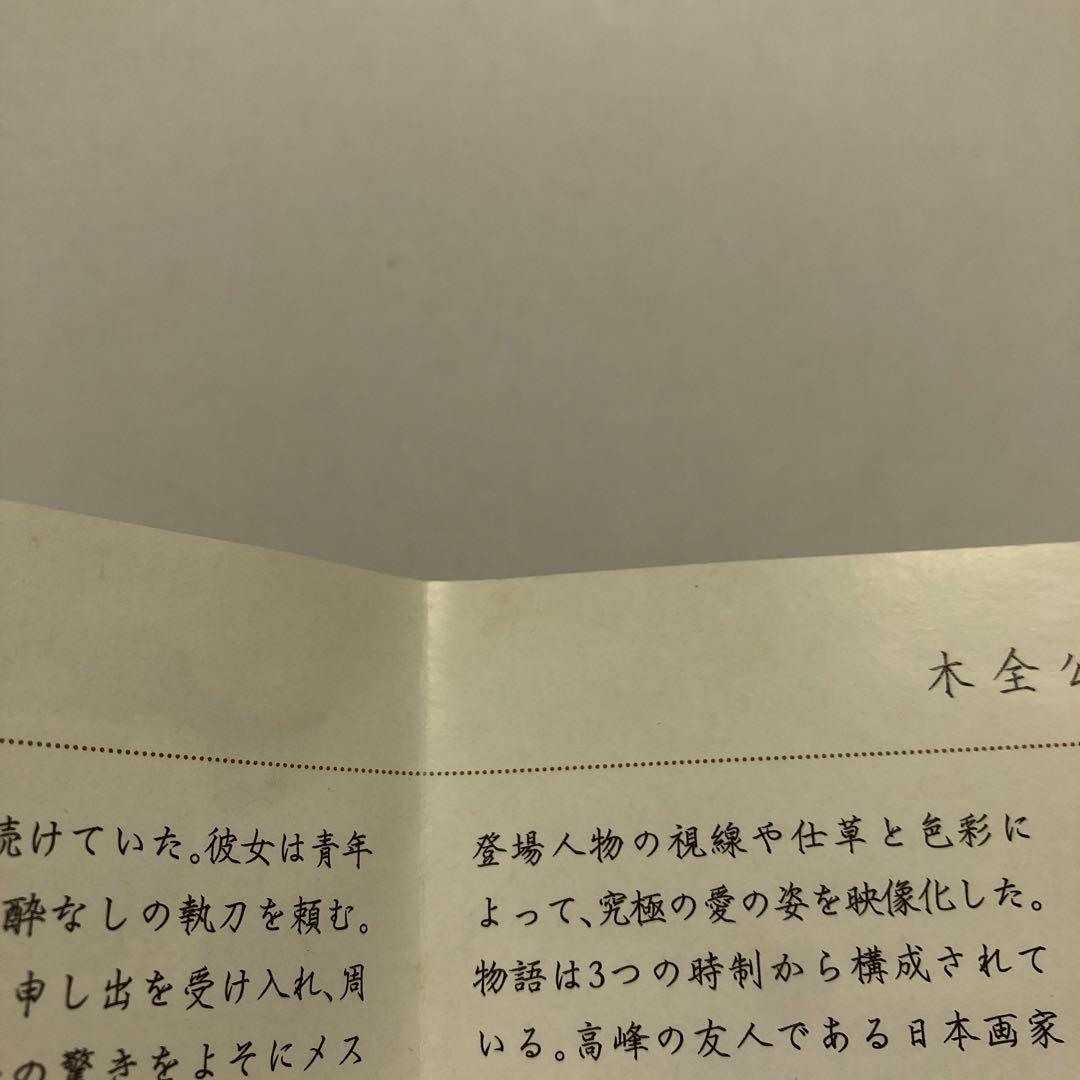 木全公
続けていた。彼女は青年
酔なしの執刀を頼む。
申し出を受け入れ、周
の驚きをよそにメス
登場人物の視線や仕草と色彩に
よって、究極の愛の姿を映像化した。
物語は3つの時制から構成されて
いる。高峰の友人である日本画家